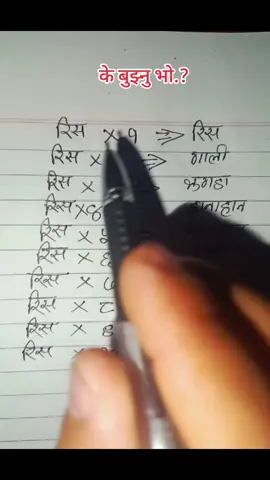 के बुझ्नु भो.?
रिस × १ ⇒ रिस
रिस × ⇒ गाली
रिस × ⇒ झगडा
रिस × ४
रिस × ५
रिस × ६
रिस × ७
रिस × ८
रिस × ९
रिस ×